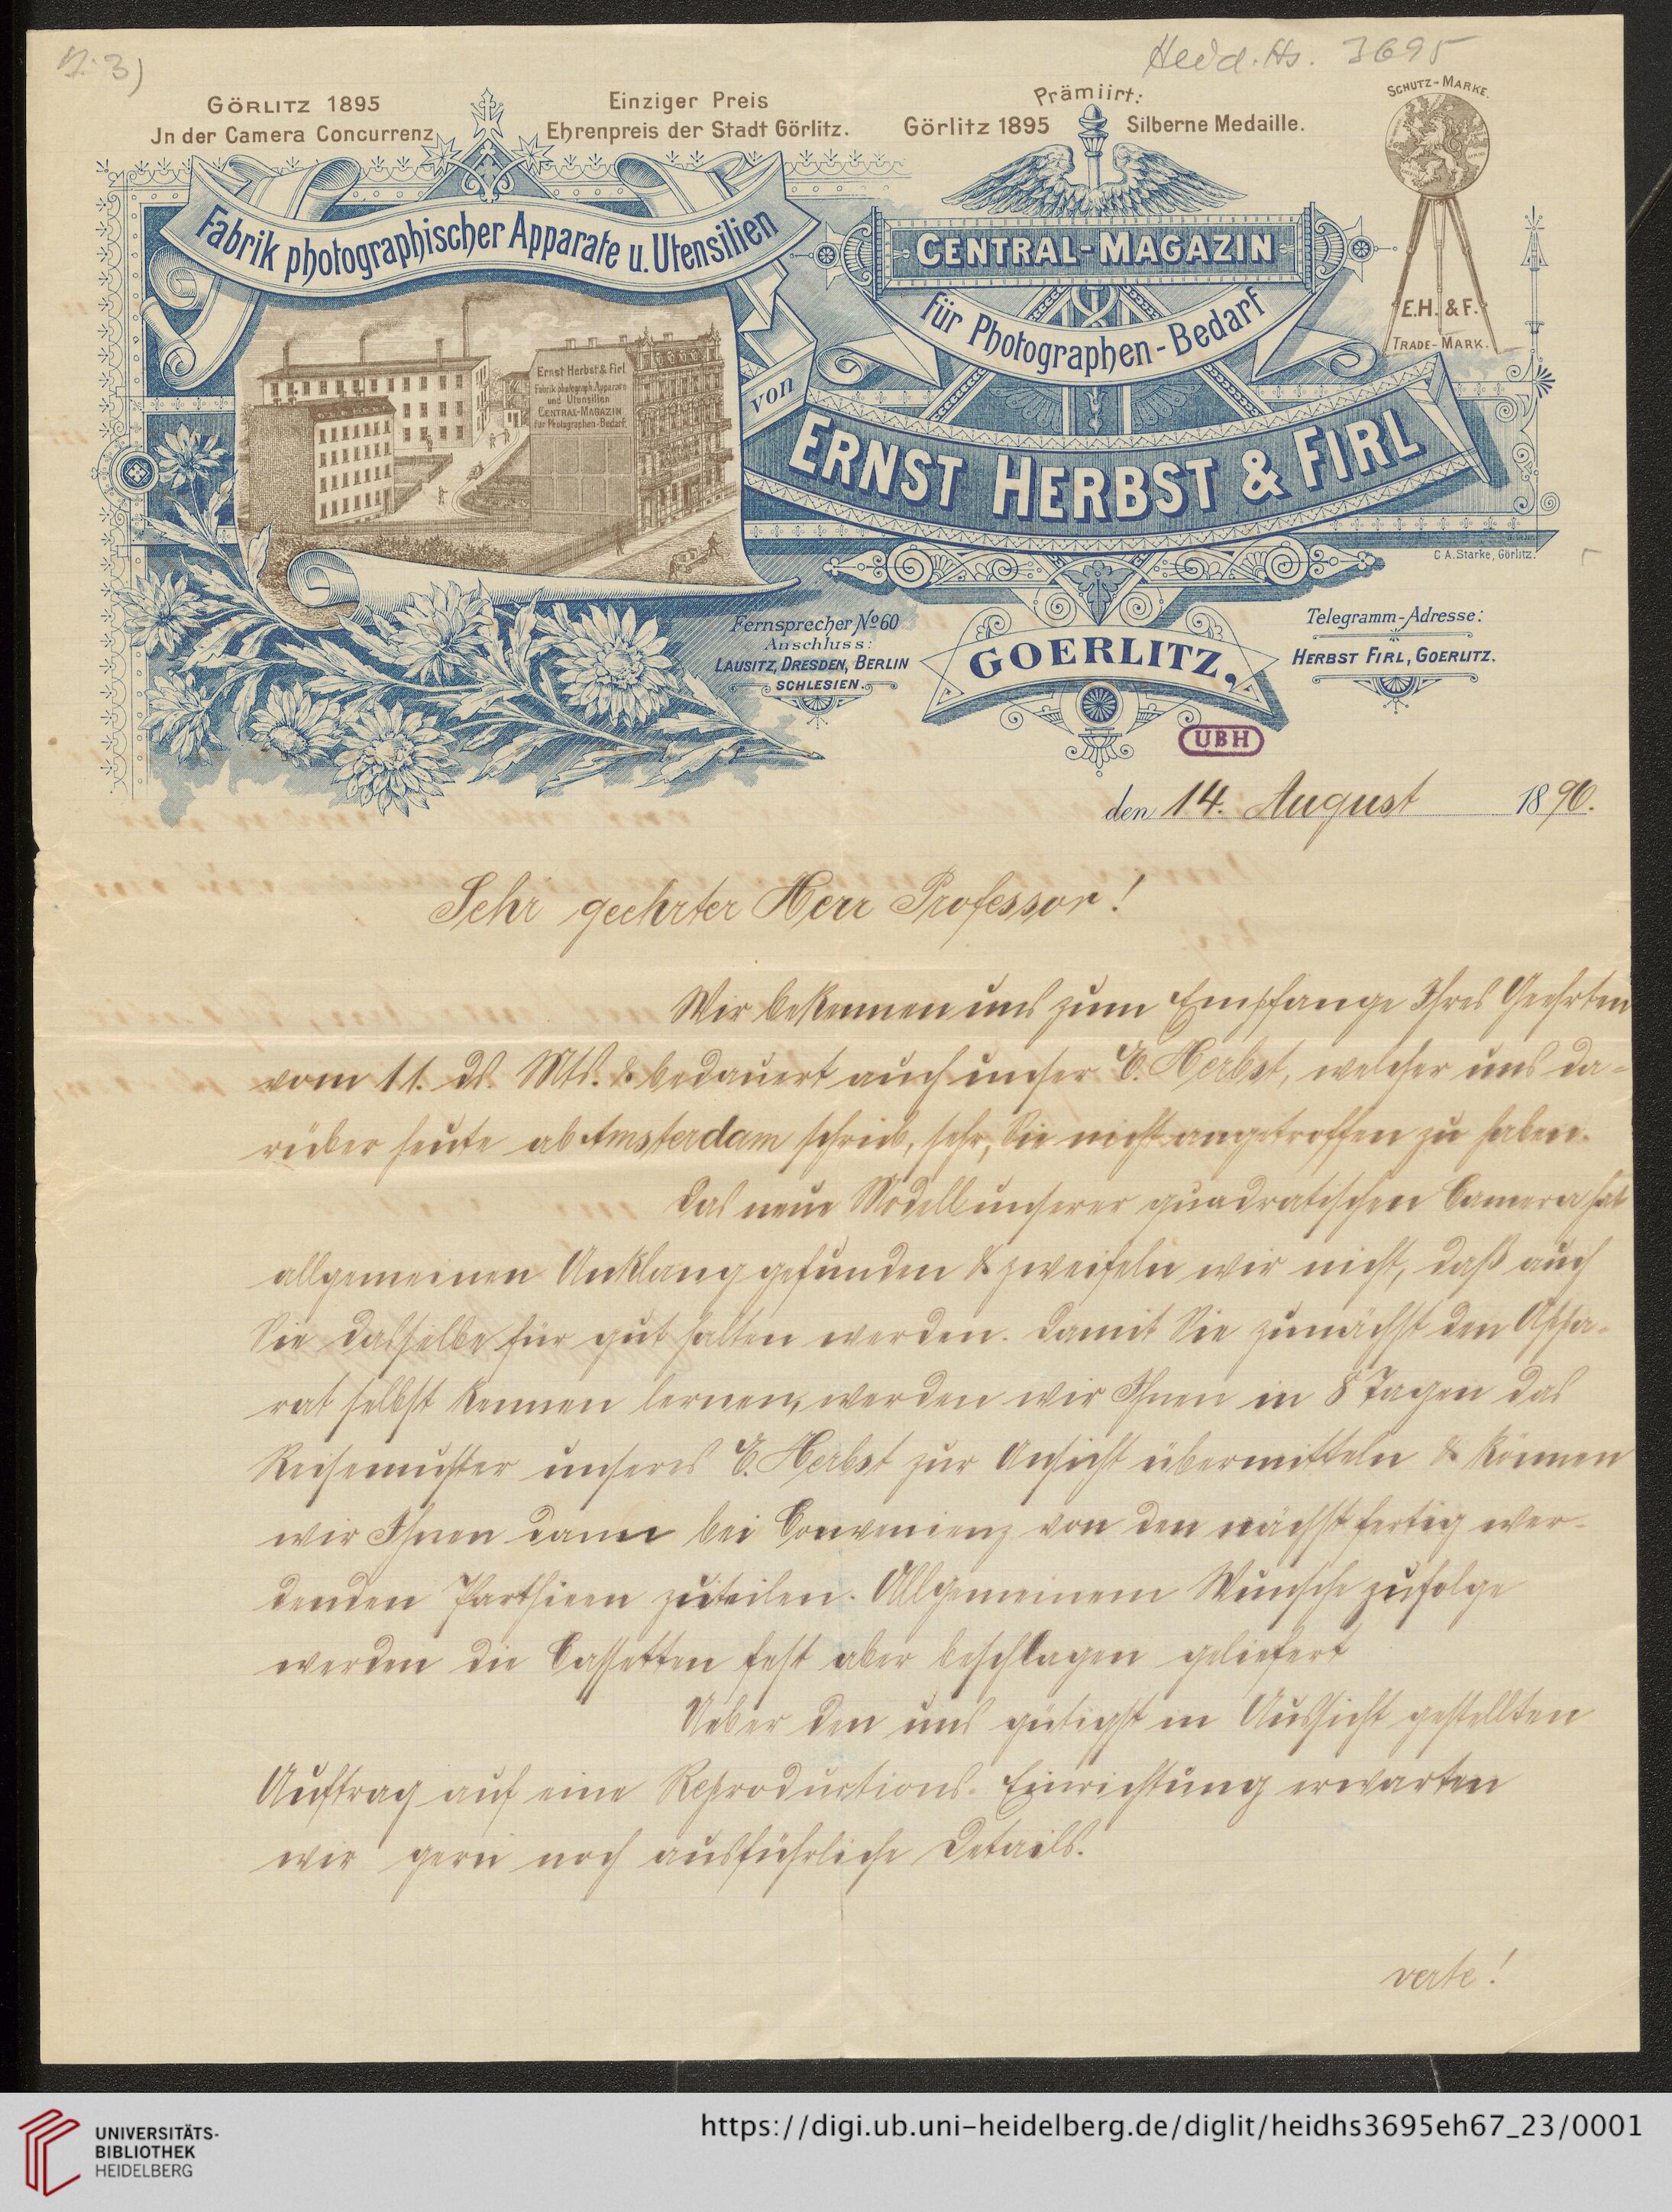 Heid. Hs. 3695
GÖRLITZ 1895
Jn der Camera Concurrenz
Einziger Preis
Ehrenpreis der Stadt Görlitz.
Prämiirt:
Görlitz 1895 Silberne Medaille.
SCHUTZ-MARKE.
E.H. & F.
TRADE-MARK.
Fabrik photographischer Apparate u. Utensilien
Ernst Herbst & Firl
Fabrik photograph. Apparate
und Utensilien
CENTRAL-MAGAZIN
für Photographen-Bedarf.
von
CENTRAL-MAGAZIN
für Photographen-Bedarf
ERNST HERBST & FIRL
C A. Starke, Görlitz.
Fernsprecher No 60
Anschluss:
LAUSITZ, DRESDEN, BERLIN
SCHLESIEN.
GOERLITZ,
Telegramm-Adresse:
HERBST FIRL, GOERLITZ.
UBH
den 14. August 1896.
Sehr geehrter Herr Professor!
Wir bekennen uns zum Empfange Ihres Geehrten
vom 11. ds. Mts. & bedauert auch unser E. Herbst, welcher uns da-
rüber heute ab Amsterdam schrieb, sehr, Sie nicht angetroffen zu haben.
Das neue Modell unserer quadratischen Camera hat
allgemeinen Anklang gefunden & zweifeln wir nicht, daß auch
Sie dasselbe für gut halten werden. Damit Sie zunächst den Appa-
rat selbst kennen lernen, werden wir Ihnen in 8 Tagen das
Reisemuster unseres E. Herbst zur Ansicht übermitteln & können
wir Ihnen dann bei Convenienz von den nächst fertig wer-
denden Parthieen zuteilen. Allgemeinem Wunsche zufolge
werden die Cassetten fest aber beschlagen geliefert
Ueber den uns gütigst in Aussicht gestellten
Auftrag auf eine Reproductions-Einrichtung erwarten
wir gern noch ausführliche Details.
verte!
UNIVERSITÄTS-
BIBLIOTHEK
HEIDELBERG
https://digi.ub.uni-heidelberg.de/diglit/heidhs3695eh67_23/0001